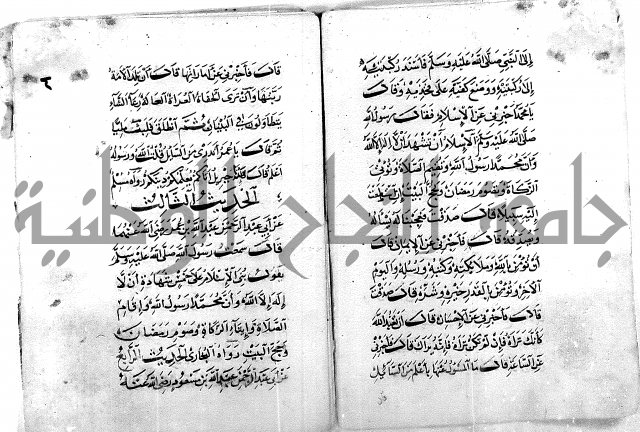 إلى النبي صلى الله عليه وسلم فأسند ركبتيه
إلى ركبتيه ووضع كفيه على فخذيه وقال
يا محمد أخبرني عن الإسلام فقال رسول الله
صلى الله عليه وسلم الإسلام أن تشهد أن لا إله إلا الله
وأن محمدا رسول الله وتقيم الصلاة وتؤتي
الزكاة وتصوم رمضان وتحج البيت إن استطعت
إليه سبيلا قال صدقت فعجبنا له يسأله
ويصدقه قال فأخبرني عن الإيمان قال
أن تؤمن بالله وملائكته وكتبه ورسله واليوم
الآخر وتؤمن بالقدر خيره وشره قال صدقت
قال فأخبرني عن الإحسان قال أن تعبد الله
كأنك تراه فإن لم تكن تراه فإنه يراك قال فأخبرني
عن الساعة قال ما المسؤول عنها بأعلم من السائل
قال
٢
قال فأخبرني عن أماراتها قال أن تلد الأمة
ربتها وأن ترى الحفاة العراة العالة رعاء الشاء
يتطاولون في البنيان ثم انطلق فلبثت مليا
ثم قال يا عمر أتدري من السائل قلت الله ورسوله
أعلم قال فإنه جبريل أتاكم يعلمكم دينكم رواه مسلم
الحديث الثالث
عن أبي عبد الرحمن عبد الله بن عمر رضي الله عنهما
قال سمعت رسول الله صلى الله عليه وسلم
يقول بني الإسلام على خمس شهادة أن لا
إله إلا الله وأن محمدا رسول الله وإقام
الصلاة وإيتاء الزكاة وصوم رمضان
وحج البيت رواه البخاري الحديث الرابع
عن أبي عبد الرحمن عبد الله بن مسعود رضي الله عنه
جامعة النجاح الوطنية